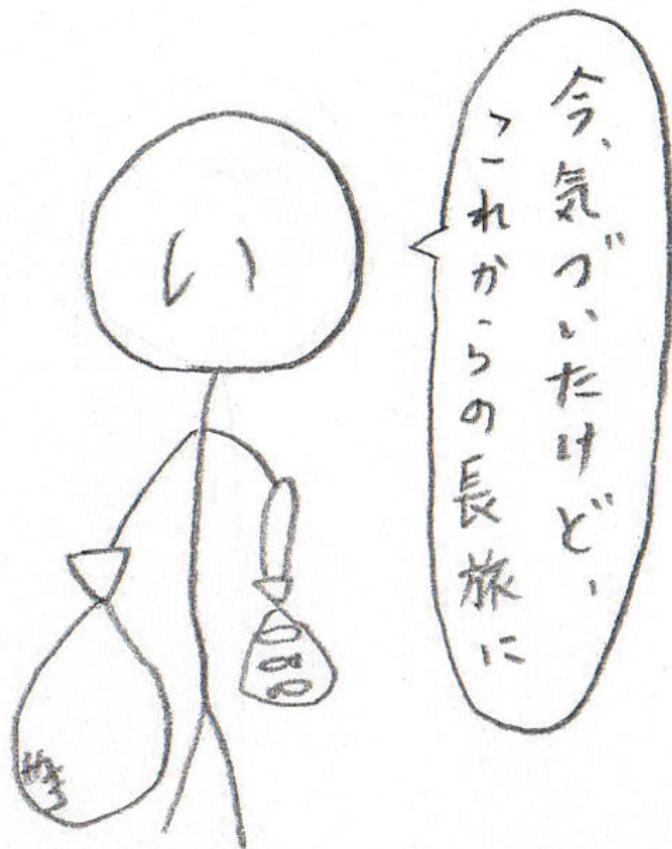 今、気づいたけど、
これからの長旅に